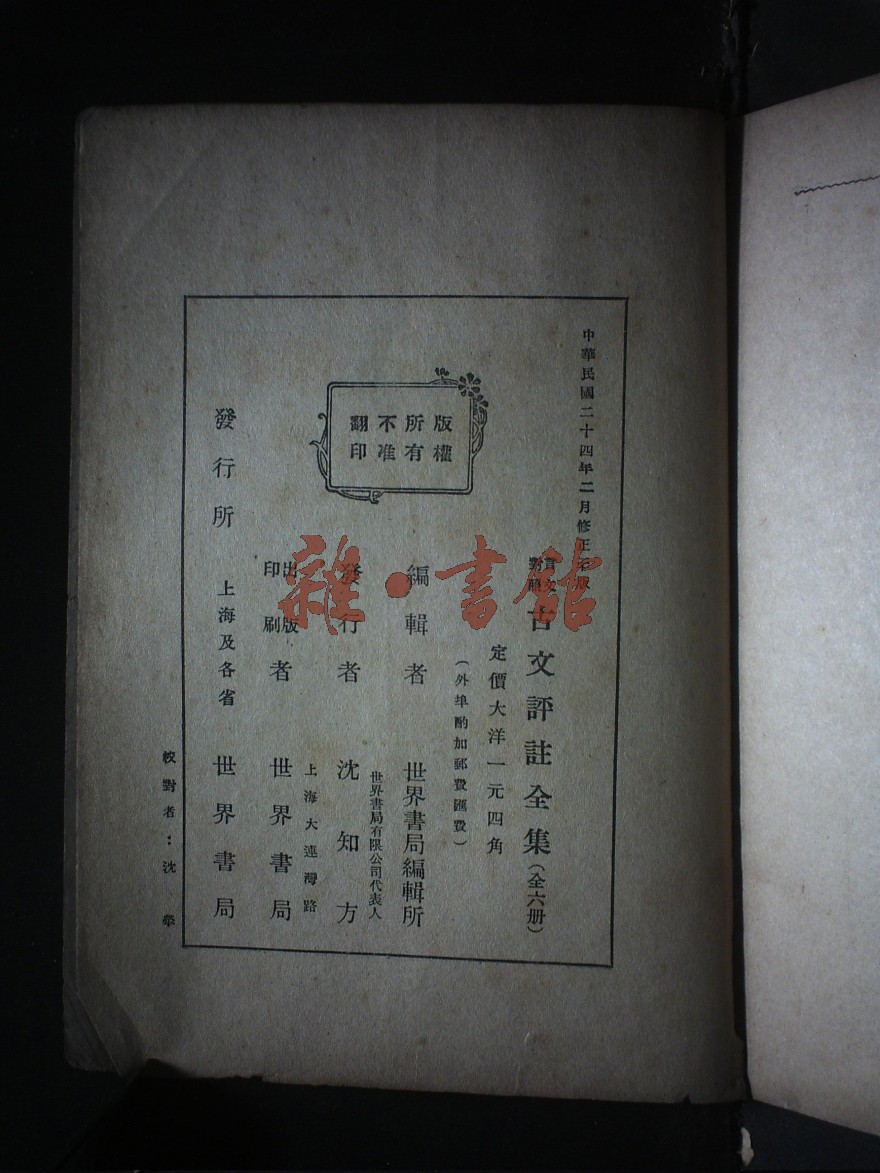 中華民國二十四年二月修正
言文對照 古文評註全集(全六册)
定價大洋一元四角
(外埠酌加郵費匯費)
版權
所有
不准
翻印
編輯者 世界書局編輯所
世界書局有限公司代表人
發行者 沈知方
上海大連灣路
出版
印刷者 世界書局
發行所 上海及各省 世界書局
校對者:沈
雜·書館